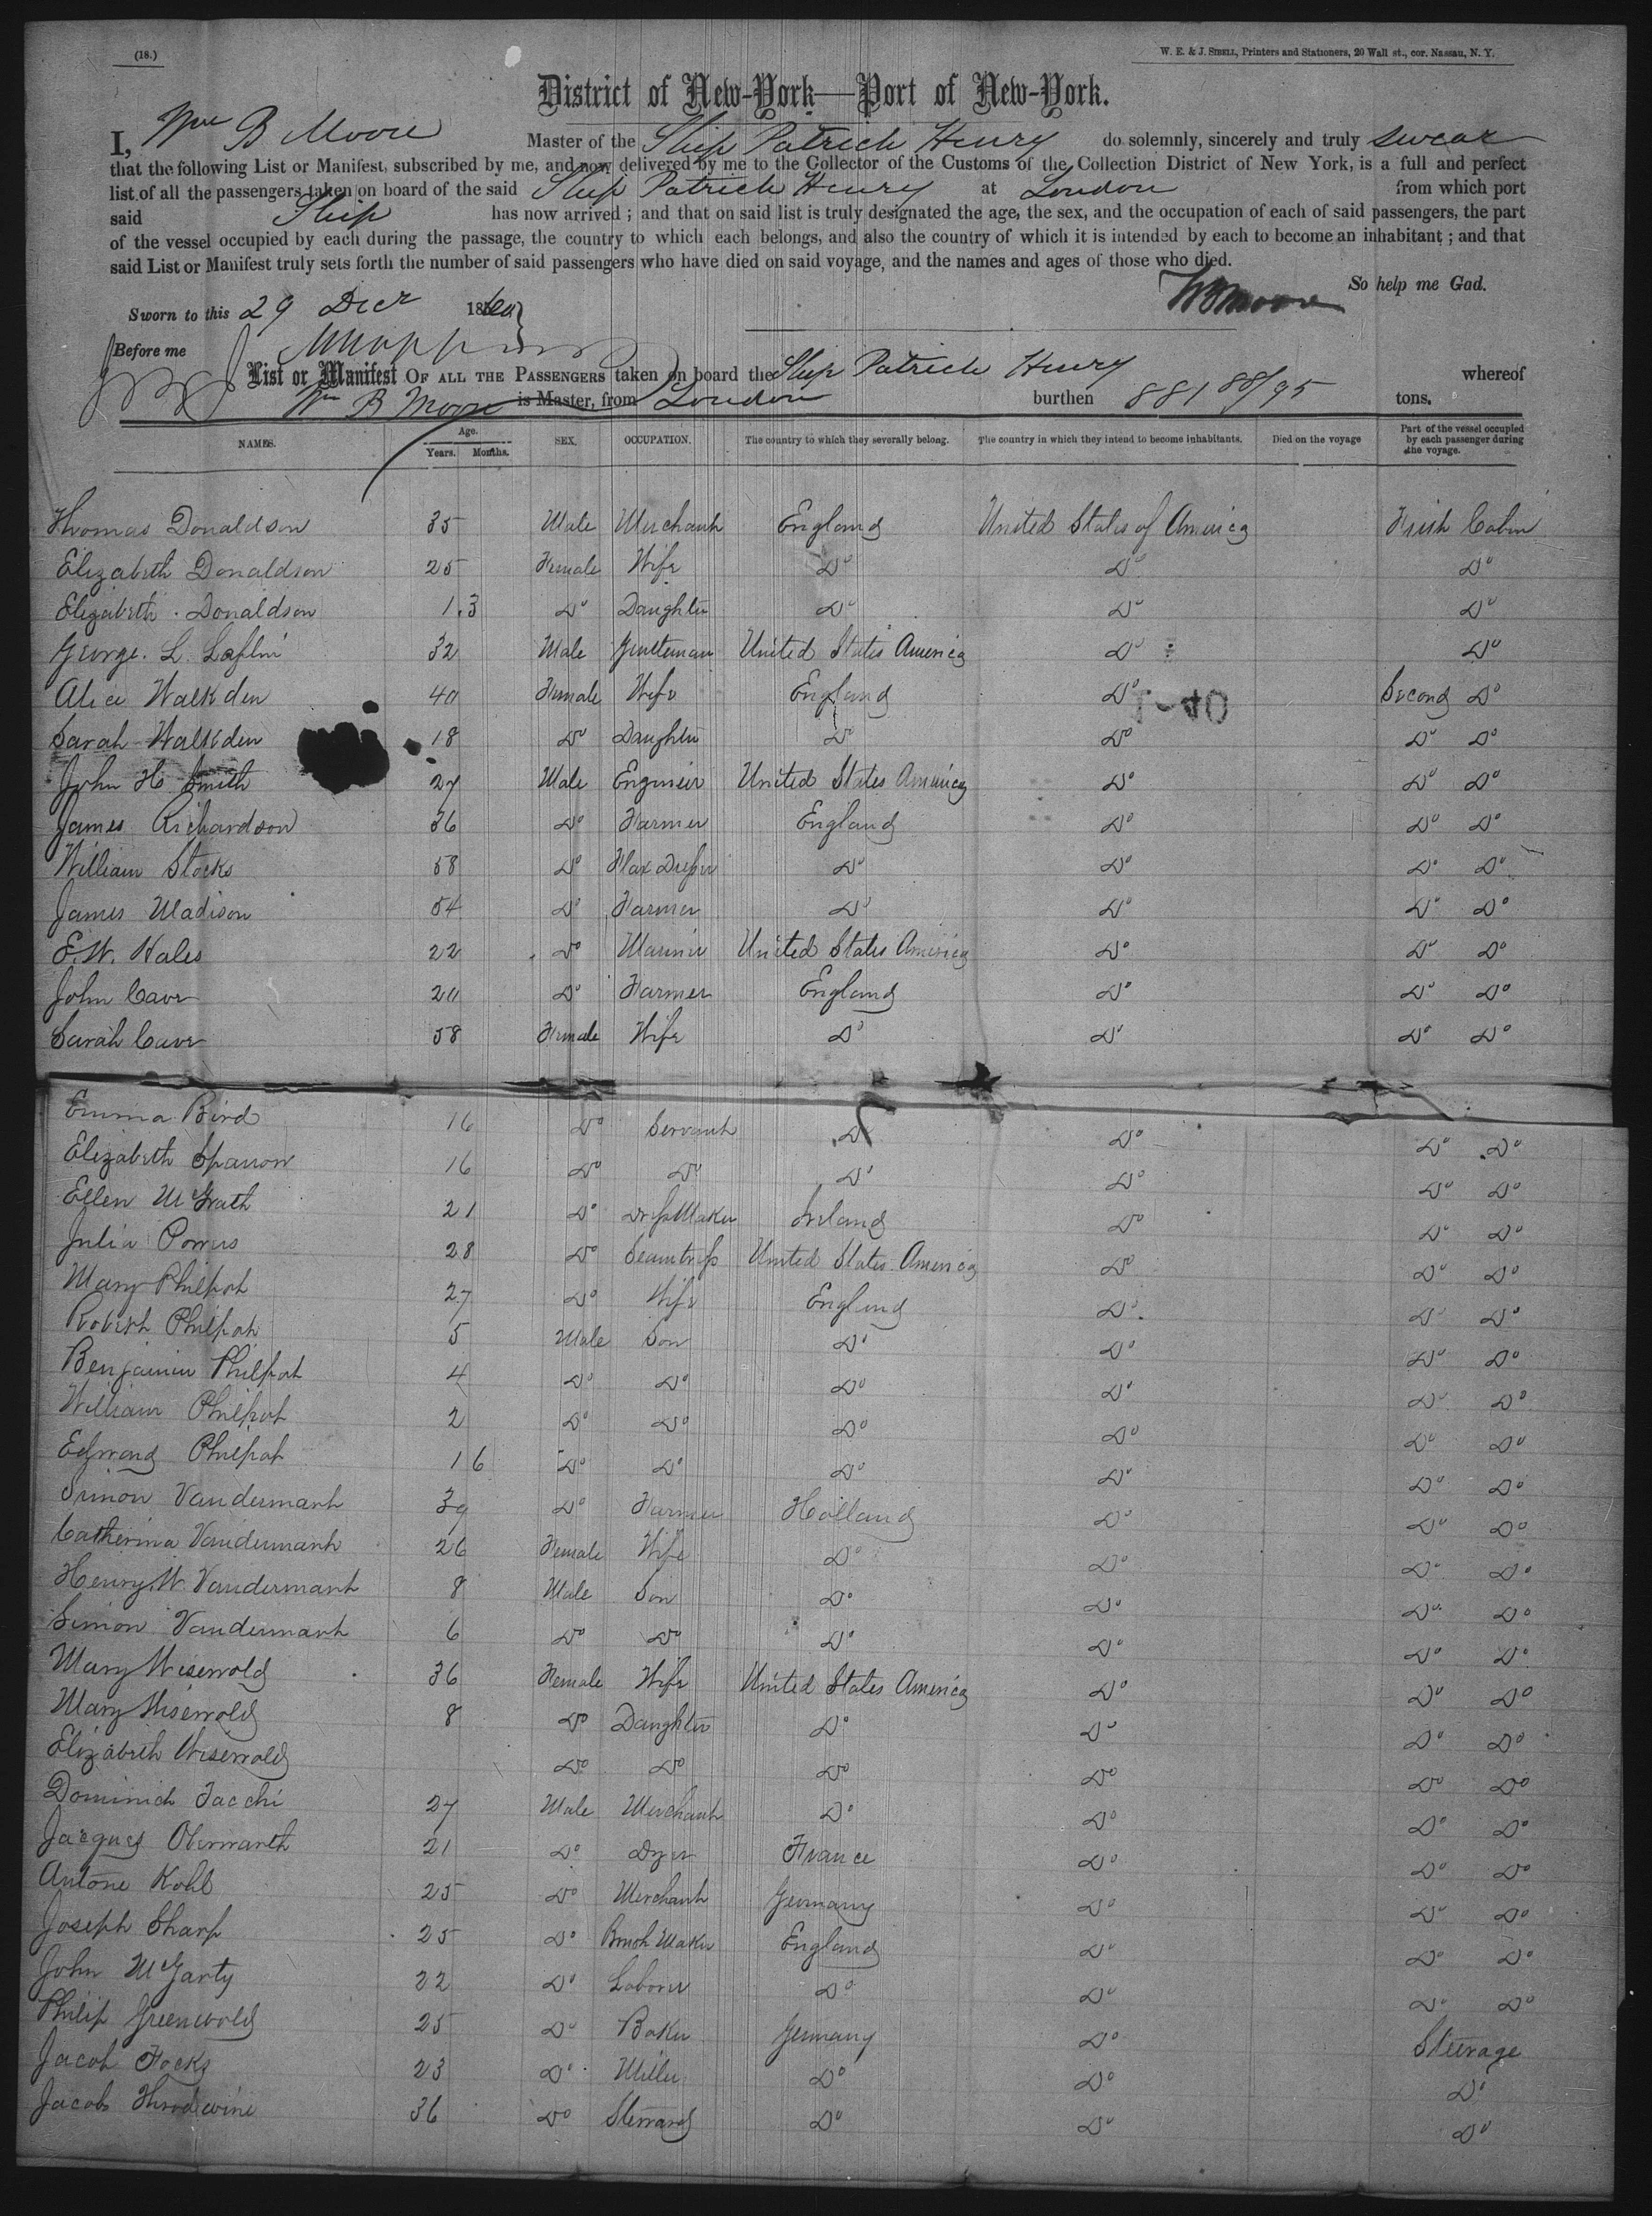 (18.)
W. E. & J. SIBELL, Printers and Stationers, 20 Wall st., cor. Nassau, N. Y.
District of New-York—Port of New-York.
I, Wm B Moore Master of the Ship Patrick Henry do solemnly, sincerely and truly swear
that the following List or Manifest, subscribed by me, and now delivered by me to the Collector of the Customs of the Collection District of New York, is a full and perfect
list of all the passengers taken on board of the said Ship Patrick Henry at London from which port
said Ship has now arrived ; and that on said list is truly designated the age, the sex, and the occupation of each of said passengers, the part
of the vessel occupied by each during the passage, the country to which each belongs, and also the country of which it is intended by each to become an inhabitant ; and that
said List or Manifest truly sets forth the number of said passengers who have died on said voyage, and the names and ages of those who died.
So help me God.
WBMoore
Sworn to this 29 Decr 1860
Before me
List or Manifest OF ALL THE PASSENGERS taken on board the Ship Patrick Henry whereof
Wm B Moore is Master, from London burthen 881 88/95 tons.
NAMES. Age. Years. Months. SEX. OCCUPATION. The country to which they severally belong. The country in which they intend to become inhabitants. Died on the voyage Part of the vessel occupied by each passenger during the voyage.
Thomas Donaldson 35 Male Merchant England United States of America First Cabin
Elizabeth Donaldson 25 Female Wife Do Do Do
Elizabeth Donaldson 1.3 Do Daughter Do Do Do
George L. Laflin 32 Male Gentleman United States America Do Do
Alice Walkden 40 Female Wife England Do Second Do
Sarah Walkden 18 Do Daughter Do Do Do Do
John H Smith 27 Male Engineer United States America Do Do Do
James Richardson 36 Do Farmer England Do Do Do
William Stocks 58 Do Flax Dresser Do Do Do Do
James Madison 54 Do Farmer Do Do Do Do
E.W. Hales 22 Do Mariner United States America Do Do Do
John Cave 20 Do Farmer England Do Do Do
Sarah Cave 58 Female Wife Do Do Do Do
Emma Bird 16 Do Servant Do Do Do Do
Elizabeth Sparrow 16 Do Do Do Do Do Do
Ellen McGrath 21 Do DressMaker Ireland Do Do Do
Julia Powers 28 Do Seamtress United States America Do Do Do
Mary Philpot 27 Do Wife England Do Do Do
Robert Philpot 5 Male Son Do Do Do Do
Benjamin Philpot 4 Do Do Do Do Do Do
William Philpot 2 Do Do Do Do Do Do
Edward Philpot 1 6 Do Do Do Do Do Do
Simon Vandermark 39 Do Farmer Holland Do Do Do
Catherina Vandermark 26 Female Wife Do Do Do Do
Henry W. Vandermark 8 Male Son Do Do Do Do
Simon Vandermark 6 Do Do Do Do Do Do
Mary Wiserwold 36 Female Wife United States America Do Do Do
Mary Wiserwold 8 Do Daughter Do Do Do Do
Elizabeth Wiserwold Do Do Do Do Do Do
Dominick Facchi 27 Male Merchant Do Do Do Do
Jacques Oberwarth 21 Do Dyer France Do Do Do
Antone Kohl 25 Do Merchant Germany Do Do Do
Joseph Sharp 25 Do Brush Maker England Do Do Do
John McGarty 22 Do Laborer Do Do Do Do
Philip Greenwold 25 Do Baker Germany Do Steerage
Jacob Focks 23 Do Miller Do Do Do
Jacob 36 Do Steward Do Do Do